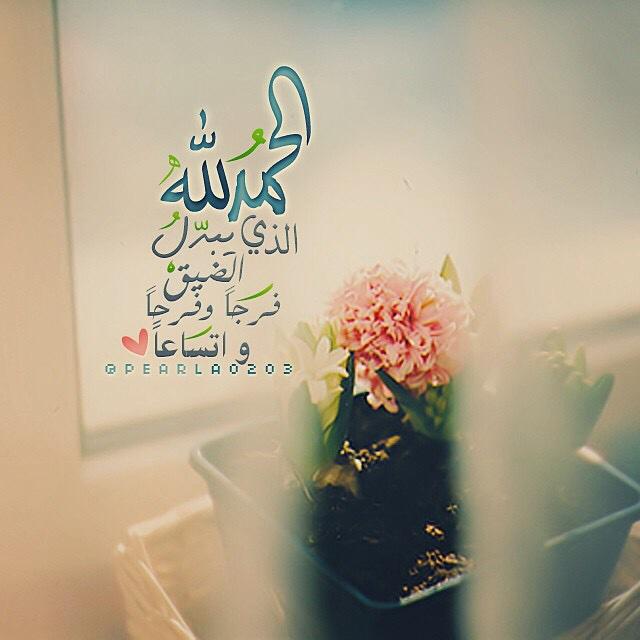 الحمدُ للهِ
الذي يبدّلُ
الضَيق
فرجاً وفرحاً
و اتساعاً
@PEARLA0203